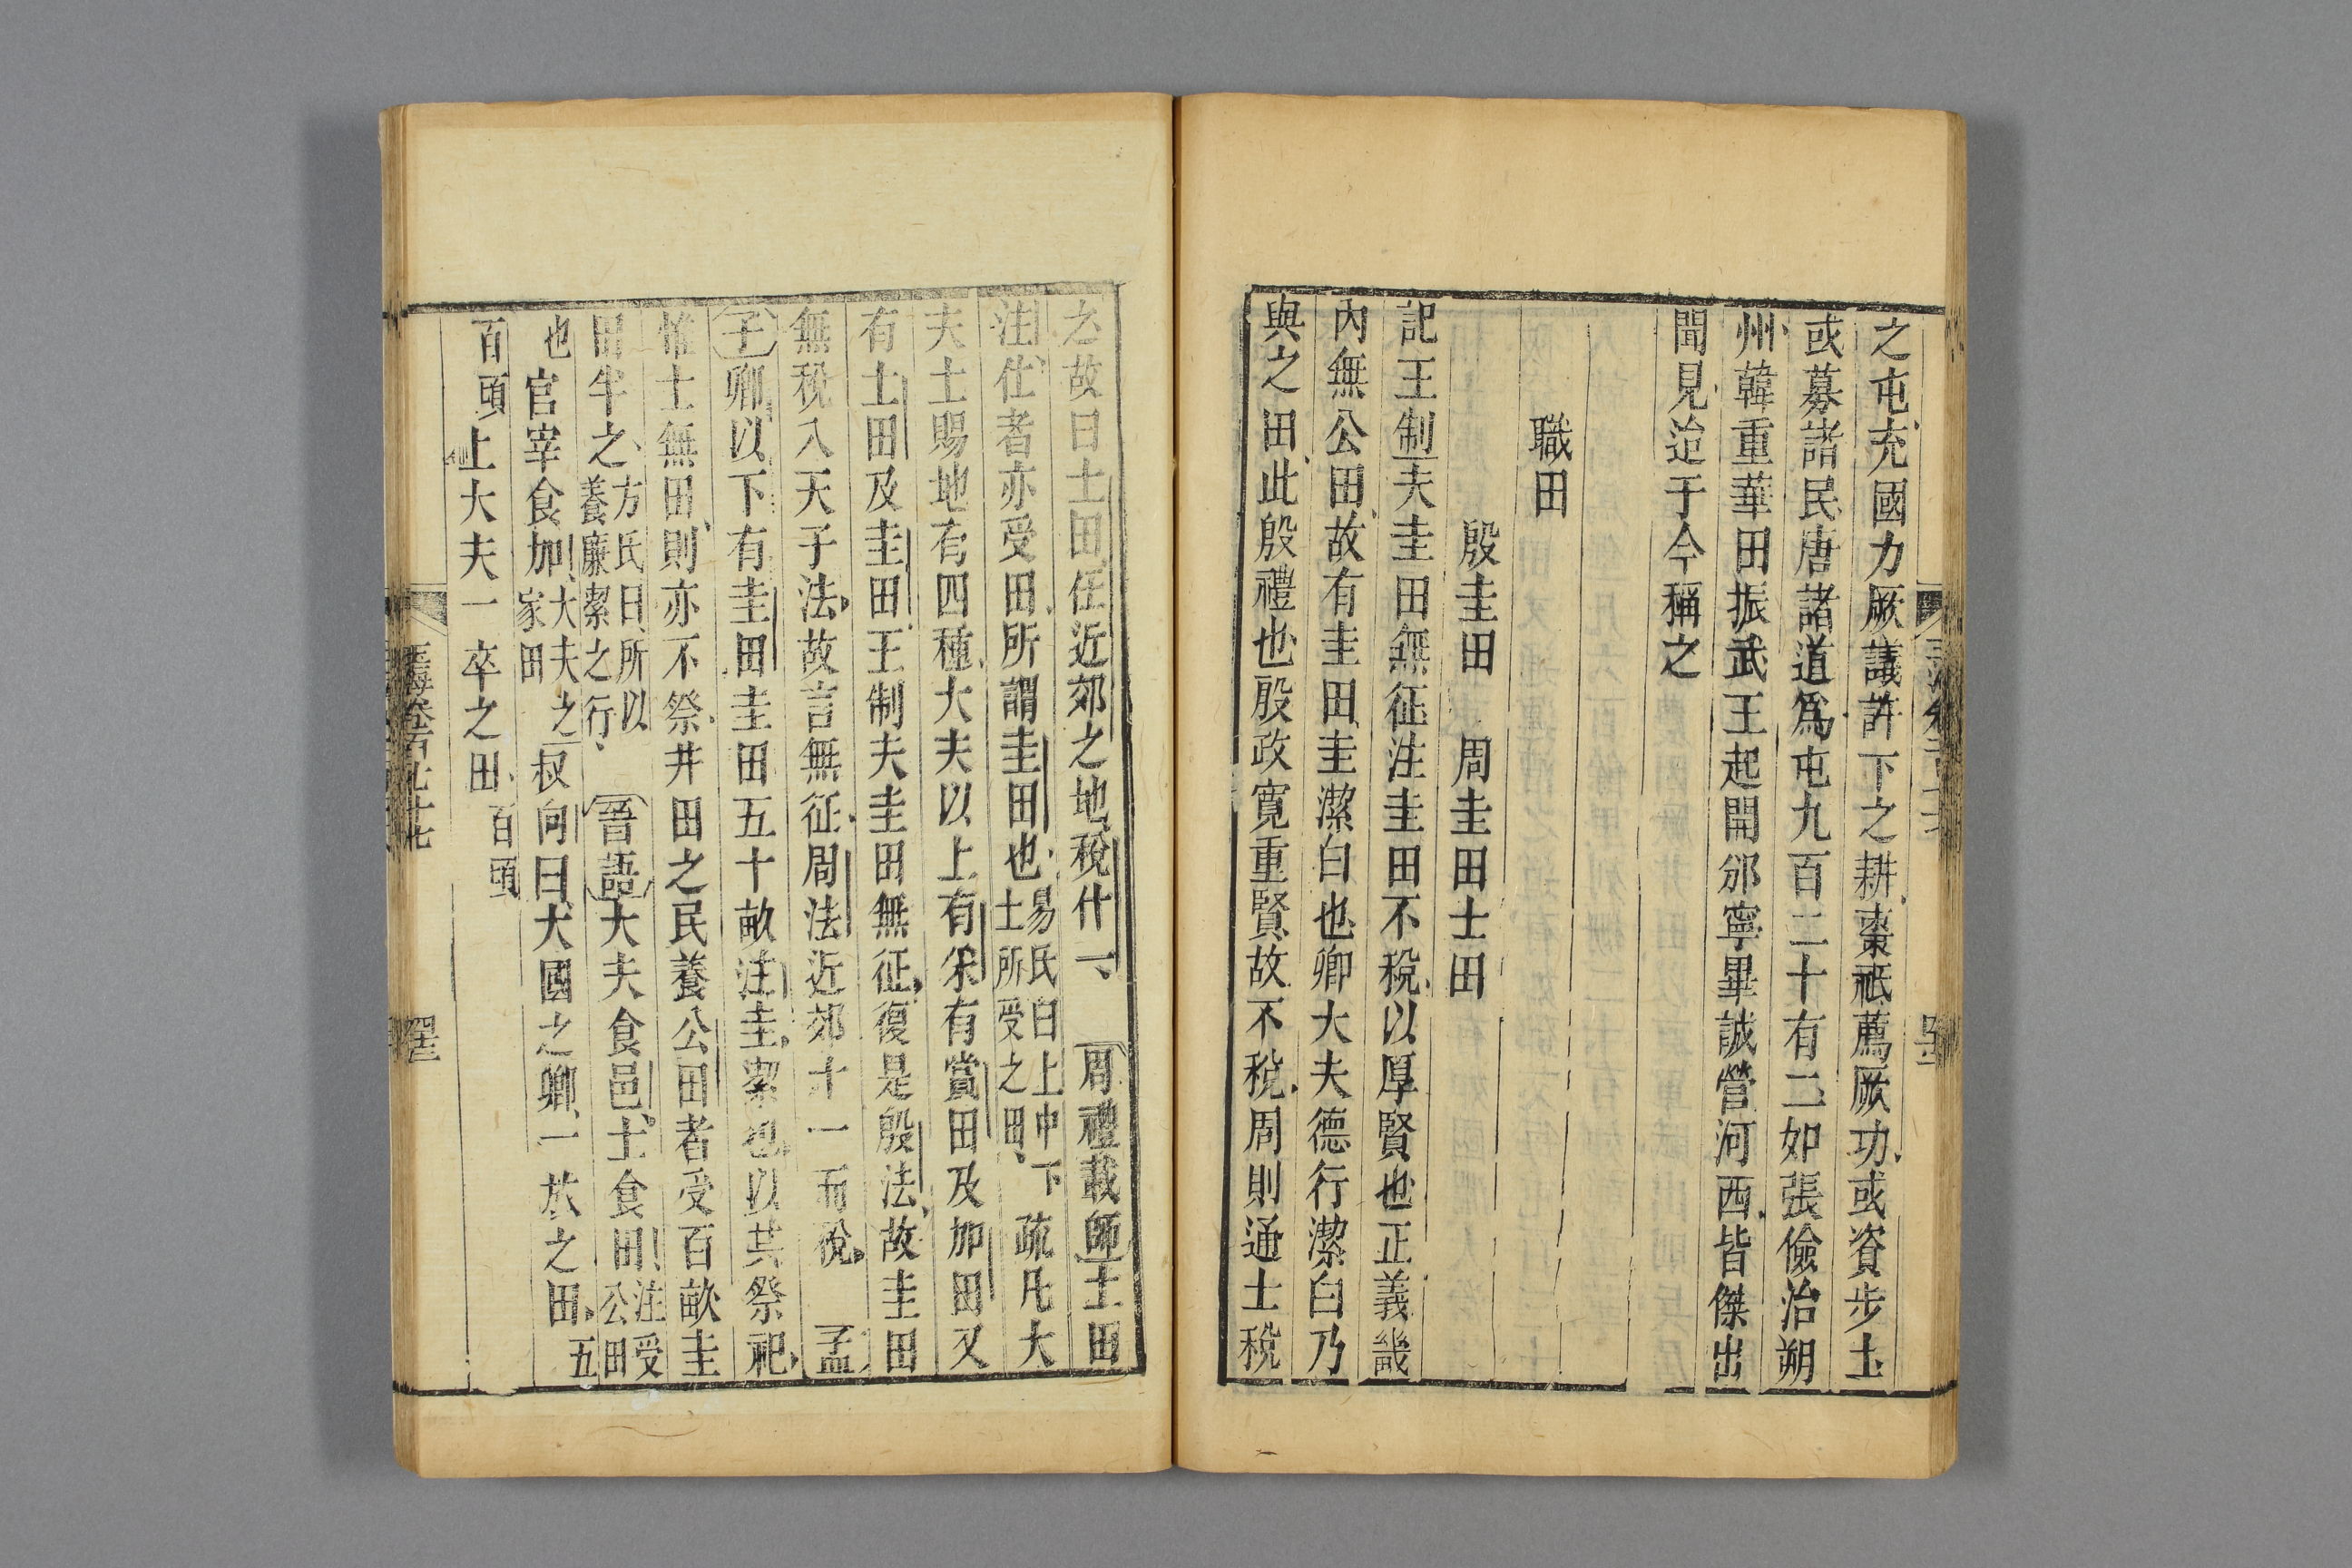 之屯充國力厥議許下之耕棗祗薦厥功或資步士
或募諸民唐諸道爲屯九百二十有二如張儉治朔
州韓重華田振武王起開邠寧畢諴營河西皆傑出
聞見迨于今稱之
職田
殷圭田 周圭田士田
記王制夫圭田無征注圭田不稅以厚賢也正義畿
內無公田故有圭田圭潔白也卿大夫德行潔白乃
與之田此殷禮也殷政寬重賢故不稅周則通士稅
之故曰士田任近郊之地稅什一 周禮載師士田
注仕者亦受田所謂圭田也易氏曰上中下士所受之田 疏凡大
夫士賜地有四種大夫以上有采有賞田及加田又
有士田及圭田王制夫圭田無征復是殷法故圭田
無稅入天子法故言無征周法近郊十一而稅 孟
子卿以下有圭田圭田五十畝注圭潔也以其祭祀
惟士無田則亦不祭井田之民養公田者受百畝圭
田半之方氏曰所以養廉潔之行 晉語大夫食邑士食田注受公田
也官宰食加大夫之家田叔向曰大國之卿一旅之田五
百頃上大夫一卒之田百頃
玉海卷百七十七